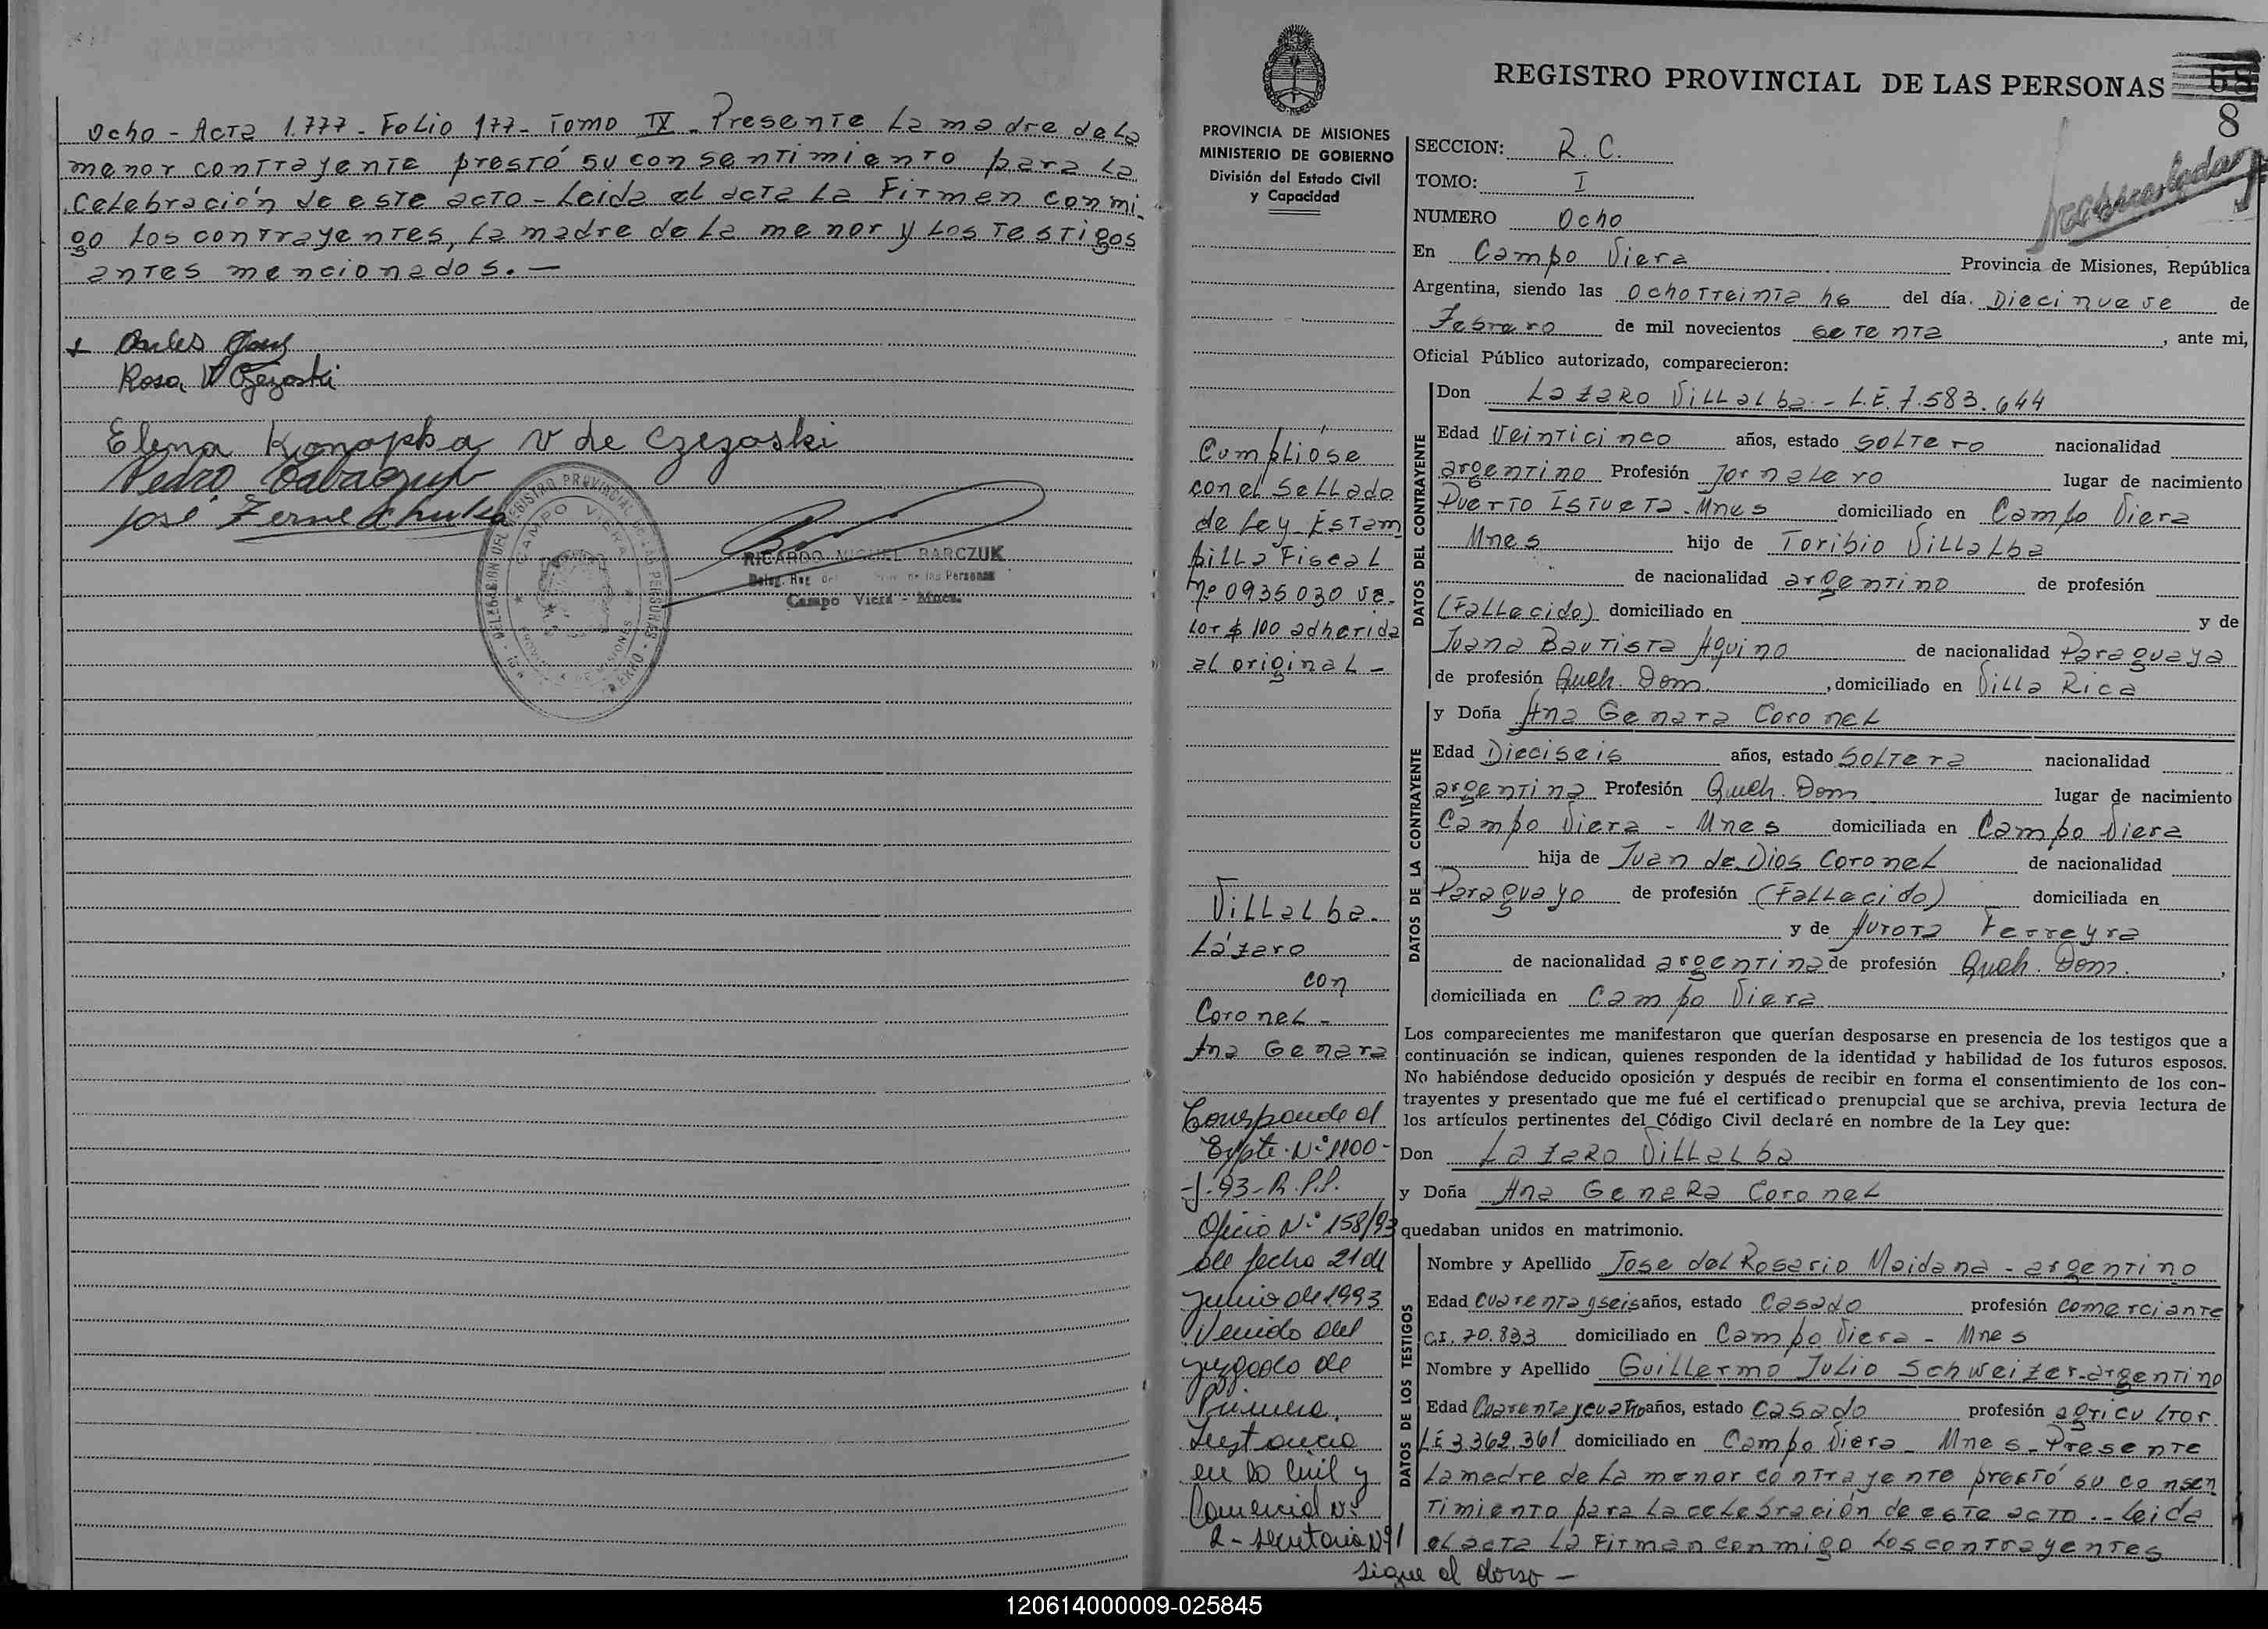 Ocho - Acta 1.777 - Folio 177 - Tomo IX - Presente la madre de la
menor contrayente prestó su consentimiento para la
celebración de este acto - Leida el acta la Firman conmi-
go los contrayentes, la madre de la menor y los testigos
antes mencionados. -
Rosa
Elena Konopka v de Czezoski
Pedro
José
CAMPO VIERA
RICARDO MIGUEL BARCZUK
Campo Viera - Mnes.
REGISTRO PROVINCIAL DE LAS PERSONAS 68
8
PROVINCIA DE MISIONES
MINISTERIO DE GOBIERNO
División del Estado Civil
y Capacidad
SECCION: R. C.
TOMO: I
NUMERO Ocho
En Campo Viera Provincia de Misiones, República
Argentina, siendo las ocho treinta hs del día Diecinueve de
Febrero de mil novecientos setenta, ante mi,
Oficial Público autorizado, comparecieron:
DATOS DEL CONTRAYENTE
Don Lazaro Villalba - L.E. 7.583.644
Edad Veinticinco años, estado soltero nacionalidad
argentino Profesión Jornalero lugar de nacimiento
Puerto Istueta - Mnes domiciliado en Campo Viera
Mnes hijo de Toribio Villalba
de nacionalidad argentino de profesión
(Fallecido) domiciliado en y de
Juana Bautista Aquino de nacionalidad Paraguaya
de profesión Queh. Dom, domiciliado en Villa Rica
DATOS DE LA CONTRAYENTE
y Doña Ana Genara Coronel
Edad Dieciseis años, estado Soltera nacionalidad
argentina Profesión Queh. Dom lugar de nacimiento
Campo Viera - Mnes domiciliada en Campo Viera
hija de Juan de Dios Coronel de nacionalidad
Paraguayo de profesión (Fallecido) domiciliada en
y de Aurora Ferreyra
de nacionalidad argentina de profesión Queh. Dom.,
domiciliada en Campo Viera
Los comparecientes me manifestaron que querían desposarse en presencia de los testigos que a
continuación se indican, quienes responden de la identidad y habilidad de los futuros esposos.
No habiéndose deducido oposición y después de recibir en forma el consentimiento de los con-
trayentes y presentado que me fué el certificado prenupcial que se archiva, previa lectura de
los artículos pertinentes del Código Civil declaré en nombre de la Ley que:
Don Lazaro Villalba
y Doña Ana Genara Coronel
quedaban unidos en matrimonio.
DATOS DE LOS TESTIGOS
Nombre y Apellido Jose del Rosario Maidana - argentino
Edad cuarenta y seis años, estado Casado profesión comerciante
C.I. 70.833 domiciliado en Campo Viera - Mnes
Nombre y Apellido Guillermo Julio Schweizer - argentino
Edad Cuarenta y cuatro años, estado Casado profesión agricultor
L.E 3.362.361 domiciliado en Campo Viera - Mnes - Presente
la madre de la menor contrayente prestó su consen
timiento para la celebración de este acto. - Leida
el acta la Firman conmigo los contrayentes
sigue al dorso -
Cumplióse
con el Sellado
de Ley - Estam
pilla Fiscal
Nº 0935030 va-
lor $ 100 adherida
al original -
Villalba -
Lázaro
con
Coronel -
Ana Genara
Corresponde al
Expte. Nº 1100-
J-93-R.P.P.
Oficio Nº 158/93
de fecha 21 de
junio de 1993
Venido del
juzgado de
Primera
Instancia
en lo Civil y
Comercial Nº
2 - Secretaria Nº 1
120614000009-025845